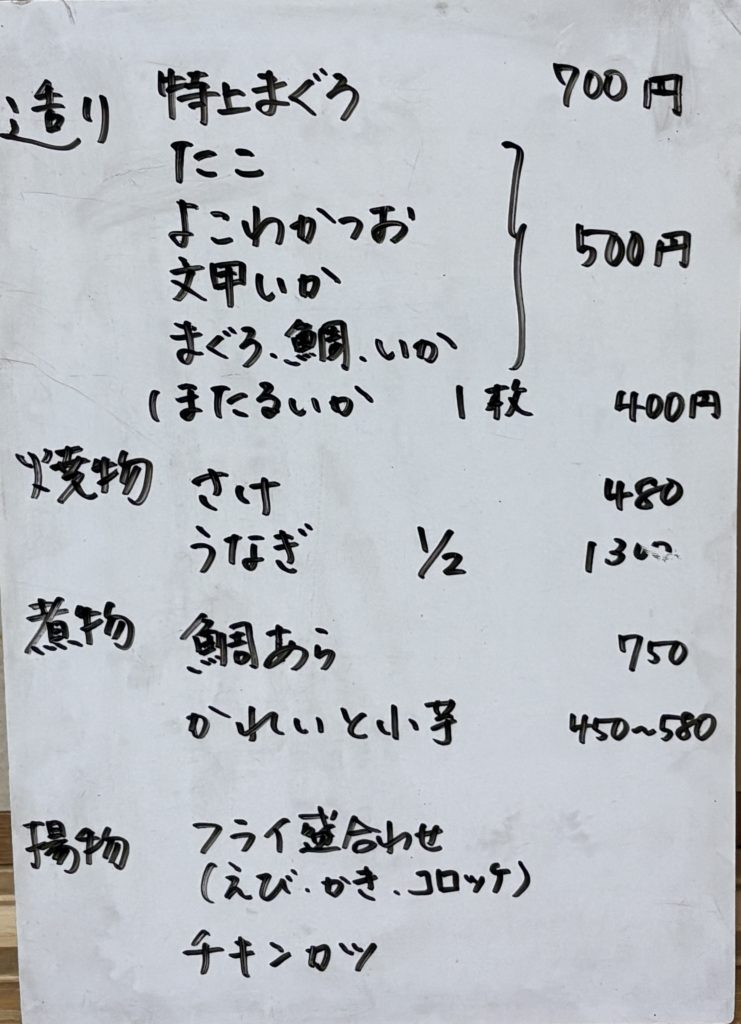 造り 特上まぐろ 700円
たこ
よこわかつお
文甲いか
まぐろ、鯛、いか
500円
ほたるいか 1枚 400円
焼物 さけ 480
うなぎ 1/2 1300
煮物 鯛あら 750
かれいと小芋 450~580
揚物 フライ盛合わせ
(えび・かき・コロッケ)
チキンカツ